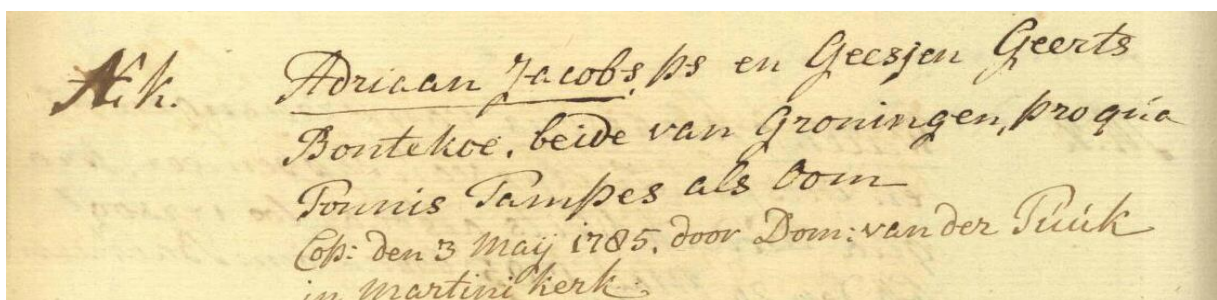 A.k. Adriaan Jacobs, ps en Geesjen Geerts
Bontekoe, beide van Groningen, pro qua
Tonnis Tampes als Oom
Cop: den 3 Maij 1785. door Dom: van der Túúk
in Martini kerk.